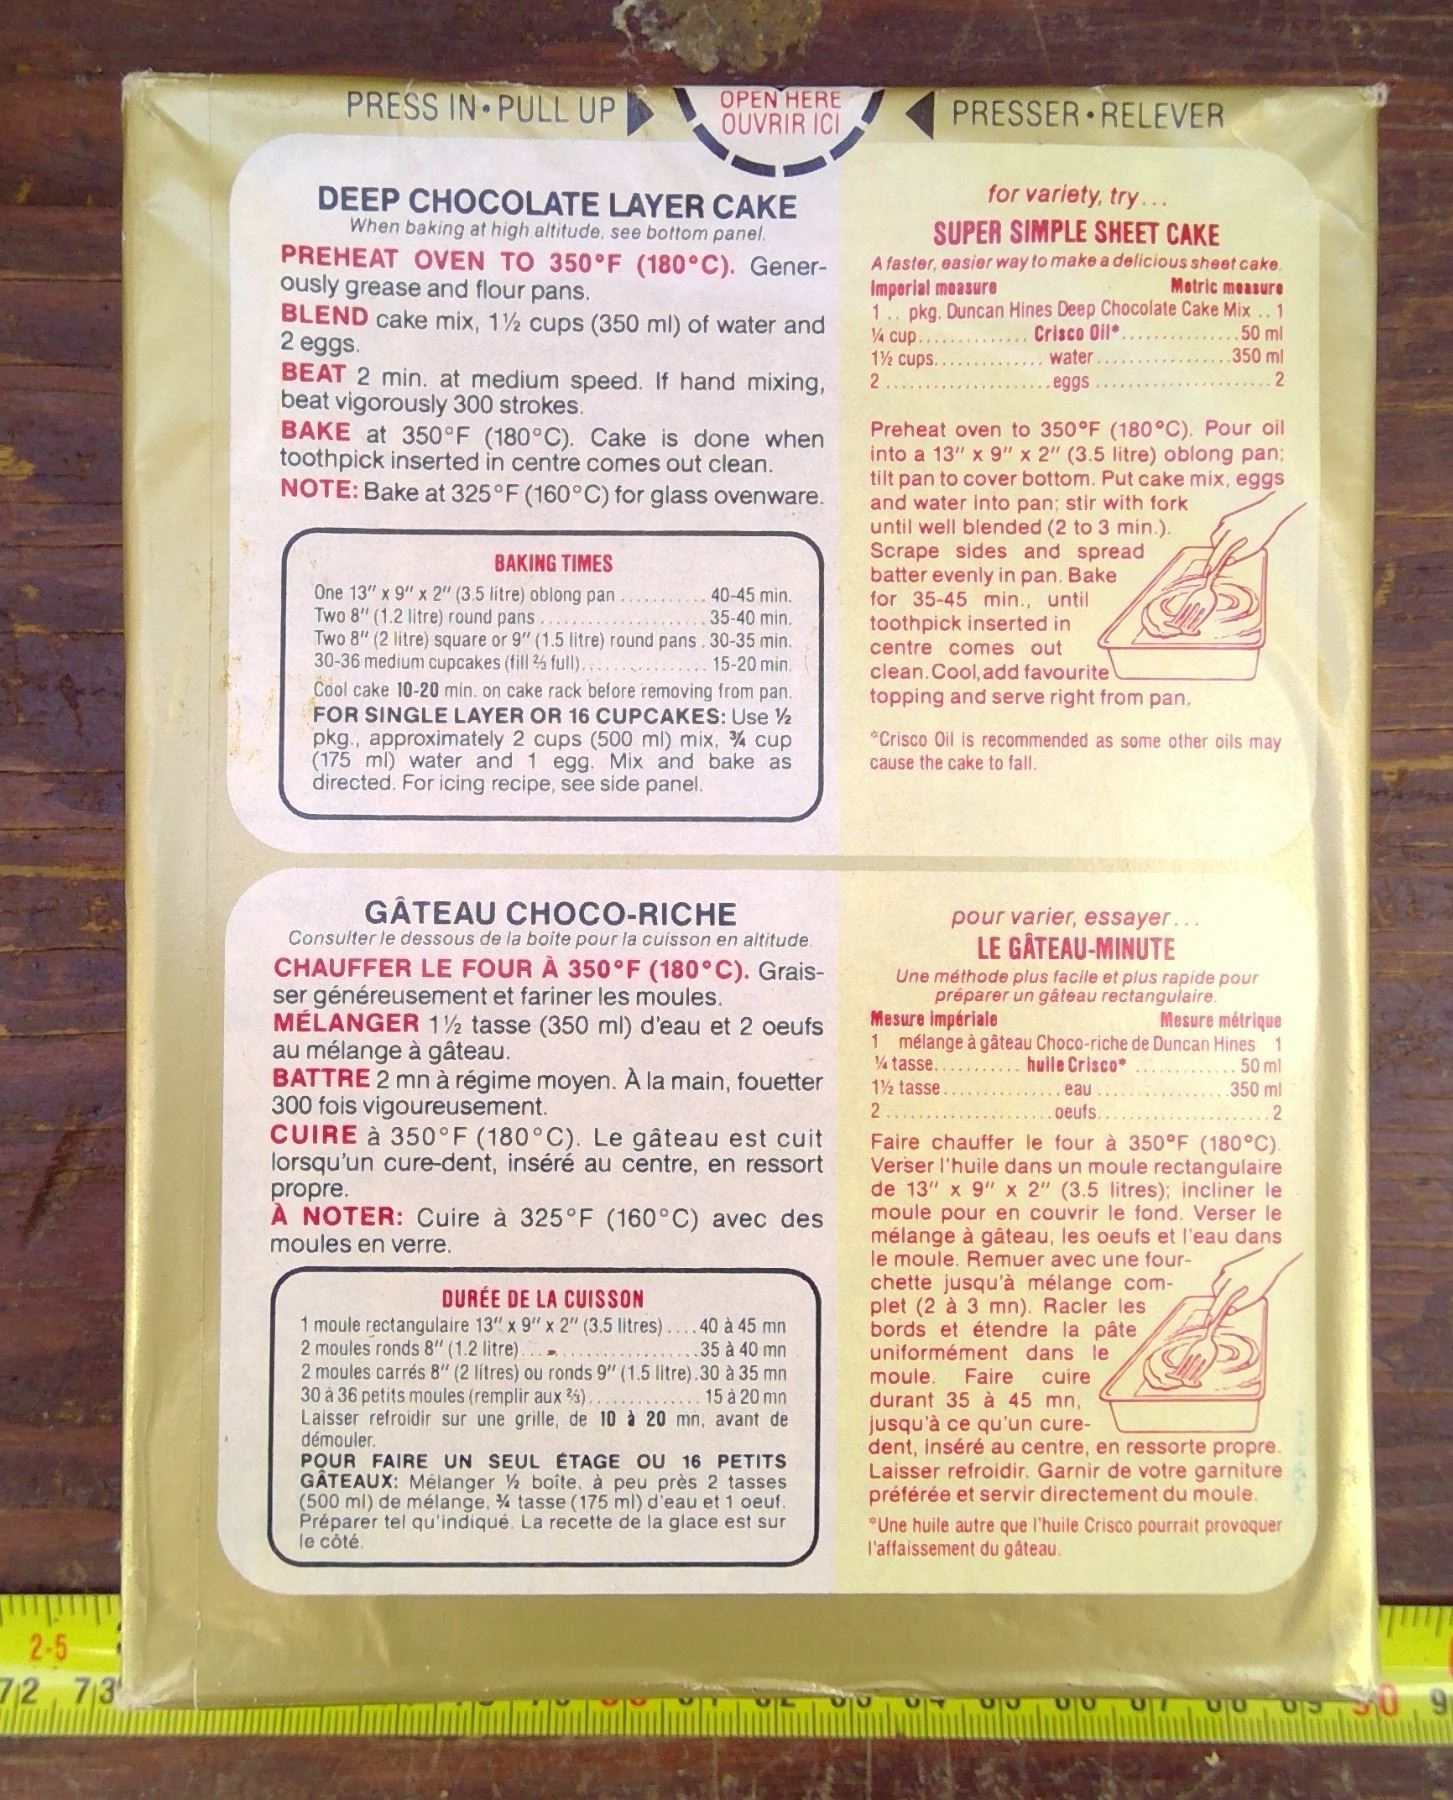 PRESS IN • PULL UP
OPEN HERE
OUVRIR ICI
PRESSER • RELEVER
DEEP CHOCOLATE LAYER CAKE
When baking at high altitude, see bottom panel.
PREHEAT OVEN TO 350°F (180°C). Gener-
ously grease and flour pans.
BLEND cake mix, 1½ cups (350 ml) of water and
2 eggs.
BEAT 2 min. at medium speed. If hand mixing,
beat vigorously 300 strokes.
BAKE at 350°F (180°C). Cake is done when
toothpick inserted in centre comes out clean.
NOTE: Bake at 325°F (160°C) for glass ovenware.
BAKING TIMES
One 13" x 9" x 2" (3.5 litre) oblong pan ........... 40-45 min.
Two 8" (1.2 litre) round pans ..................... 35-40 min.
Two 8" (2 litre) square or 9" (1.5 litre) round pans . 30-35 min.
30-36 medium cupcakes (fill ⅔ full)................ 15-20 min.
Cool cake 10-20 min. on cake rack before removing from pan.
FOR SINGLE LAYER OR 16 CUPCAKES: Use ½
pkg., approximately 2 cups (500 ml) mix, ¾ cup
(175 ml) water and 1 egg. Mix and bake as
directed. For icing recipe, see side panel.
for variety, try...
SUPER SIMPLE SHEET CAKE
A faster, easier way to make a delicious sheet cake.
Imperial measure Metric measure
1 .. pkg. Duncan Hines Deep Chocolate Cake Mix .. 1
¼ cup.............. Crisco Oil*.............. 50 ml
1½ cups.............. water ................ 350 ml
2 .................... eggs ...................... 2
Preheat oven to 350°F (180°C). Pour oil
into a 13" x 9" x 2" (3.5 litre) oblong pan;
tilt pan to cover bottom. Put cake mix, eggs
and water into pan; stir with fork
until well blended (2 to 3 min.).
Scrape sides and spread
batter evenly in pan. Bake
for 35-45 min., until
toothpick inserted in
centre comes out
clean. Cool, add favourite
topping and serve right from pan.
*Crisco Oil is recommended as some other oils may
cause the cake to fall.
GÂTEAU CHOCO-RICHE
Consulter le dessous de la boîte pour la cuisson en altitude.
CHAUFFER LE FOUR À 350°F (180°C). Grais-
ser généreusement et fariner les moules.
MÉLANGER 1½ tasse (350 ml) d'eau et 2 oeufs
au mélange à gâteau.
BATTRE 2 mn à régime moyen. À la main, fouetter
300 fois vigoureusement.
CUIRE à 350°F (180°C). Le gâteau est cuit
lorsqu'un cure-dent, inséré au centre, en ressort
propre.
À NOTER: Cuire à 325°F (160°C) avec des
moules en verre.
DURÉE DE LA CUISSON
1 moule rectangulaire 13" x 9" x 2" (3.5 litres) .... 40 à 45 mn
2 moules ronds 8" (1.2 litre)..................... 35 à 40 mn
2 moules carrés 8" (2 litres) ou ronds 9" (1.5 litre). 30 à 35 mn
30 à 36 petits moules (remplir aux ⅔)............. 15 à 20 mn
Laisser refroidir sur une grille, de 10 à 20 mn, avant de
démouler.
POUR FAIRE UN SEUL ÉTAGE OU 16 PETITS
GÂTEAUX: Mélanger ½ boîte, à peu près 2 tasses
(500 ml) de mélange, ¾ tasse (175 ml) d'eau et 1 oeuf.
Préparer tel qu'indiqué. La recette de la glace est sur
le côté.
pour varier, essayer...
LE GÂTEAU-MINUTE
Une méthode plus facile et plus rapide pour
préparer un gâteau rectangulaire.
Mesure impériale Mesure métrique
1 mélange à gâteau Choco-riche de Duncan Hines 1
¼ tasse........... huile Crisco* ............. 50 ml
1½ tasse.............. eau ................ 350 ml
2 .................... oeufs...................... 2
Faire chauffer le four à 350°F (180°C).
Verser l'huile dans un moule rectangulaire
de 13" x 9" x 2" (3.5 litres); incliner le
moule pour en couvrir le fond. Verser le
mélange à gâteau, les oeufs et l'eau dans
le moule. Remuer avec une four-
chette jusqu'à mélange com-
plet (2 à 3 mn). Racler les
bords et étendre la pâte
uniformément dans le
moule. Faire cuire
durant 35 à 45 mn,
jusqu'à ce qu'un cure-
dent, inséré au centre, en ressorte propre.
Laisser refroidir. Garnir de votre garniture
préférée et servir directement du moule.
*Une huile autre que l'huile Crisco pourrait provoquer
l'affaissement du gâteau.
2-5
72 73
90 9